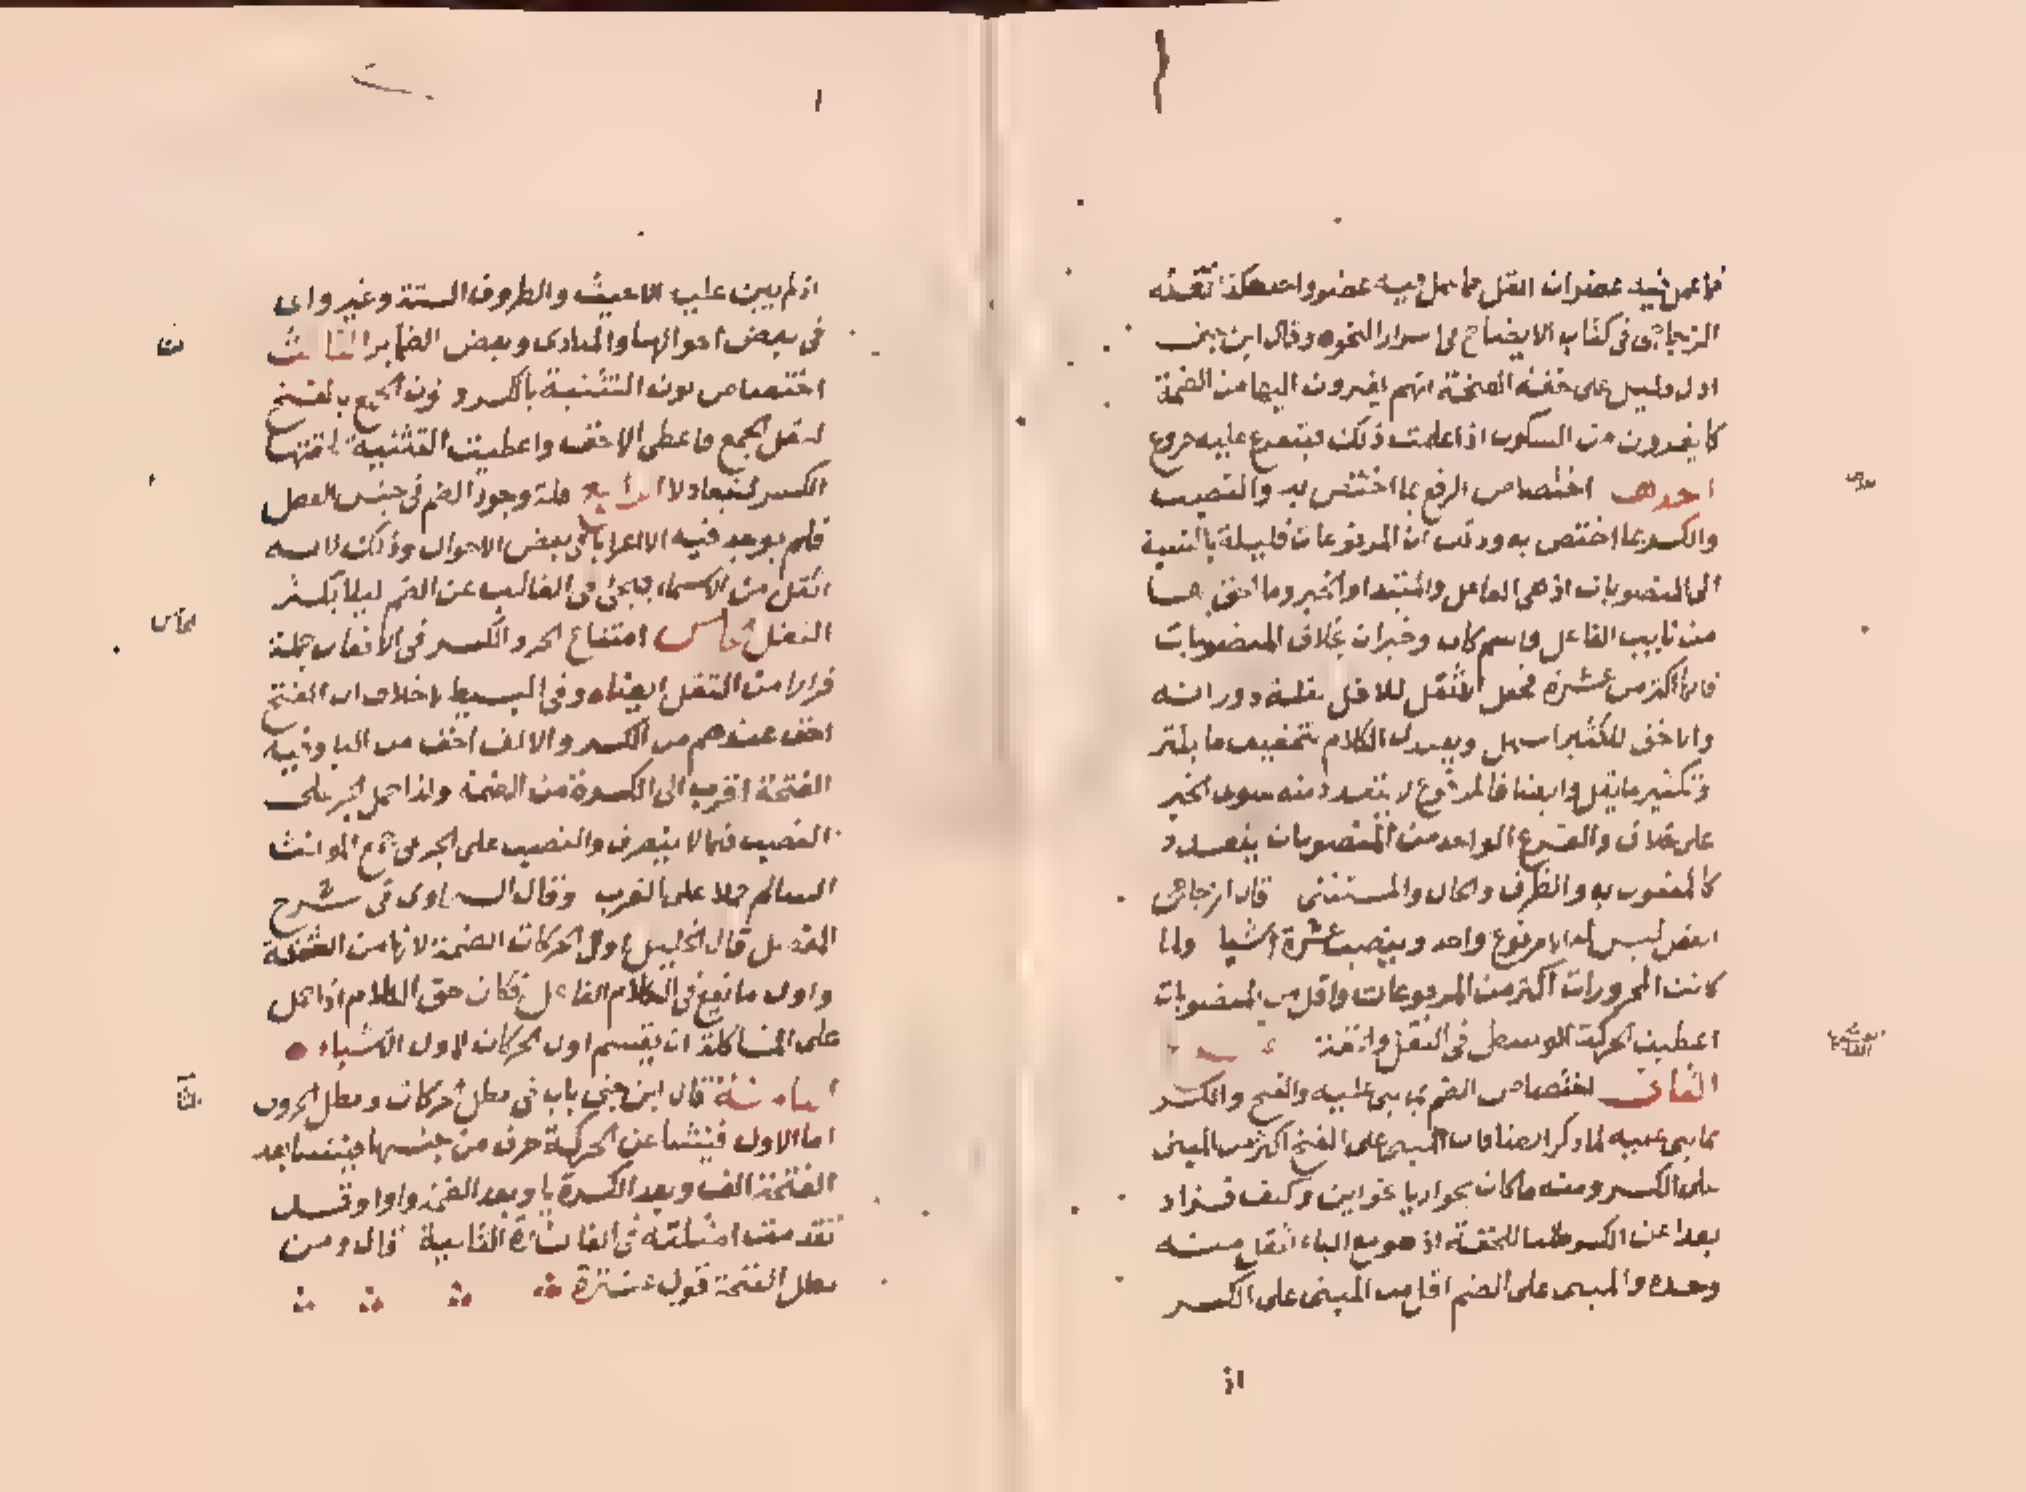 فما عمل فيه عضوان اثقل مما عمل فيه عضو واحد هكذا نقله
الزجاجي في كتاب الايضاح في اسرار النحو وقال ابن جني
ادل دليل على خفة الفتحة انهم يفرون اليها من الضمة
كما يفرون من السكون اذا علمت ذلك فيتفرع عليه فروع
احدها اختصاص الرفع بما اختص به والنصب
والكسر بما اختص به وذلك ان المرفوعات قليلة بالنسبة
الى المنصوبات اذ هي الفاعل والمبتدا والخبر وما الحق بها
من نايب الفاعل واسم كان وخبر ان بخلاف المنصوبات
فانها اكثر من عشرة فجعل الاثقل للاقل لقلة دورانه
والاخف للكثير ليسهل ويعتدل الكلام بتخفيف ما يكثر
وتكثير ما يقل وايضا فالمرفوع لا يتعدد منه سوى الخبر
على خلاف والفرع الواحد من المنصوبات يتعدد
كالمفعول به والظرف والحال والمستثنى قال الزجاجي
الفعل ليس له الا مرفوع واحد وينصب عشرة اشيا ولما
كانت المجرورات اكثر من المرفوعات واقل من المنصوبات
اعطيت الحركة الوسطى في الثقل والخفة
الثاني اختصاص الضم بما بني عليه والفتح والكسر
بما بني عليه لما ذكر ايضا فان المبني على الفتح اكثر من المبني
على الكسر ومنه ما كان بجوار يا نحو اين وكيف فزاد
بعدا عن الكسر طلبا للخفة اذ هو مع الياء اثقل منه
وحده والمبني على الضم اقل من المبني على الكسر
اذ
اذ لم يبن عليه الا حيث والظروف الستة وغير واى
في بعض احوالها والمنادى وبعض الضماير الثالث
اختصاص نون التثنية بالكسر ونون الجمع بالفتح
لثقل الجمع فاعطى الاخف واعطيت التثنية لخفتها
الكسر ليتعادلا الرابع قلة وجود الضم في جنس الفعل
فلم يوجد فيه الا اعرابا في بعض الاحوال وذلك لانه
اثقل من الاسماء فيجئ في الغالب عن الضم ليلا يكثر
الثقل الخامس امتناع الجر والكسر في الافعال جملة
فرارا من الثقل ايضا وفي البسيط لا خلاف ان الفتح
اخف عندهم من الكسر والالف اخف من اليا وفيه
الفتحة اقرب الى الكسرة من الضمة ولذا حمل الجر على
النصب فيما لا ينصرف والنصب على الجر في جمع المونث
السالم حملا على القرب وقال السخاوى في شرح
المفصل قال الخليل اول الحركات الضمة لانها من الشفة
واول ما يقع في الكلام الفاعل فكان حق الكلام اذا حمل
على المشاكلة ان يقسم اول الحركات لاول الاشياء
السادسة قال ابن جني باب في مطل الحركات ومطل الحروف
اما الاول فينشا عن الحركة حرف من جنسها فينشا بعد
الفتحة الف وبعد الكسرة يا وبعد الضمة واوا وقد
تقدمت امثلته في الفائدة الثانية قال ومن
مطل الفتحة قول عنترة